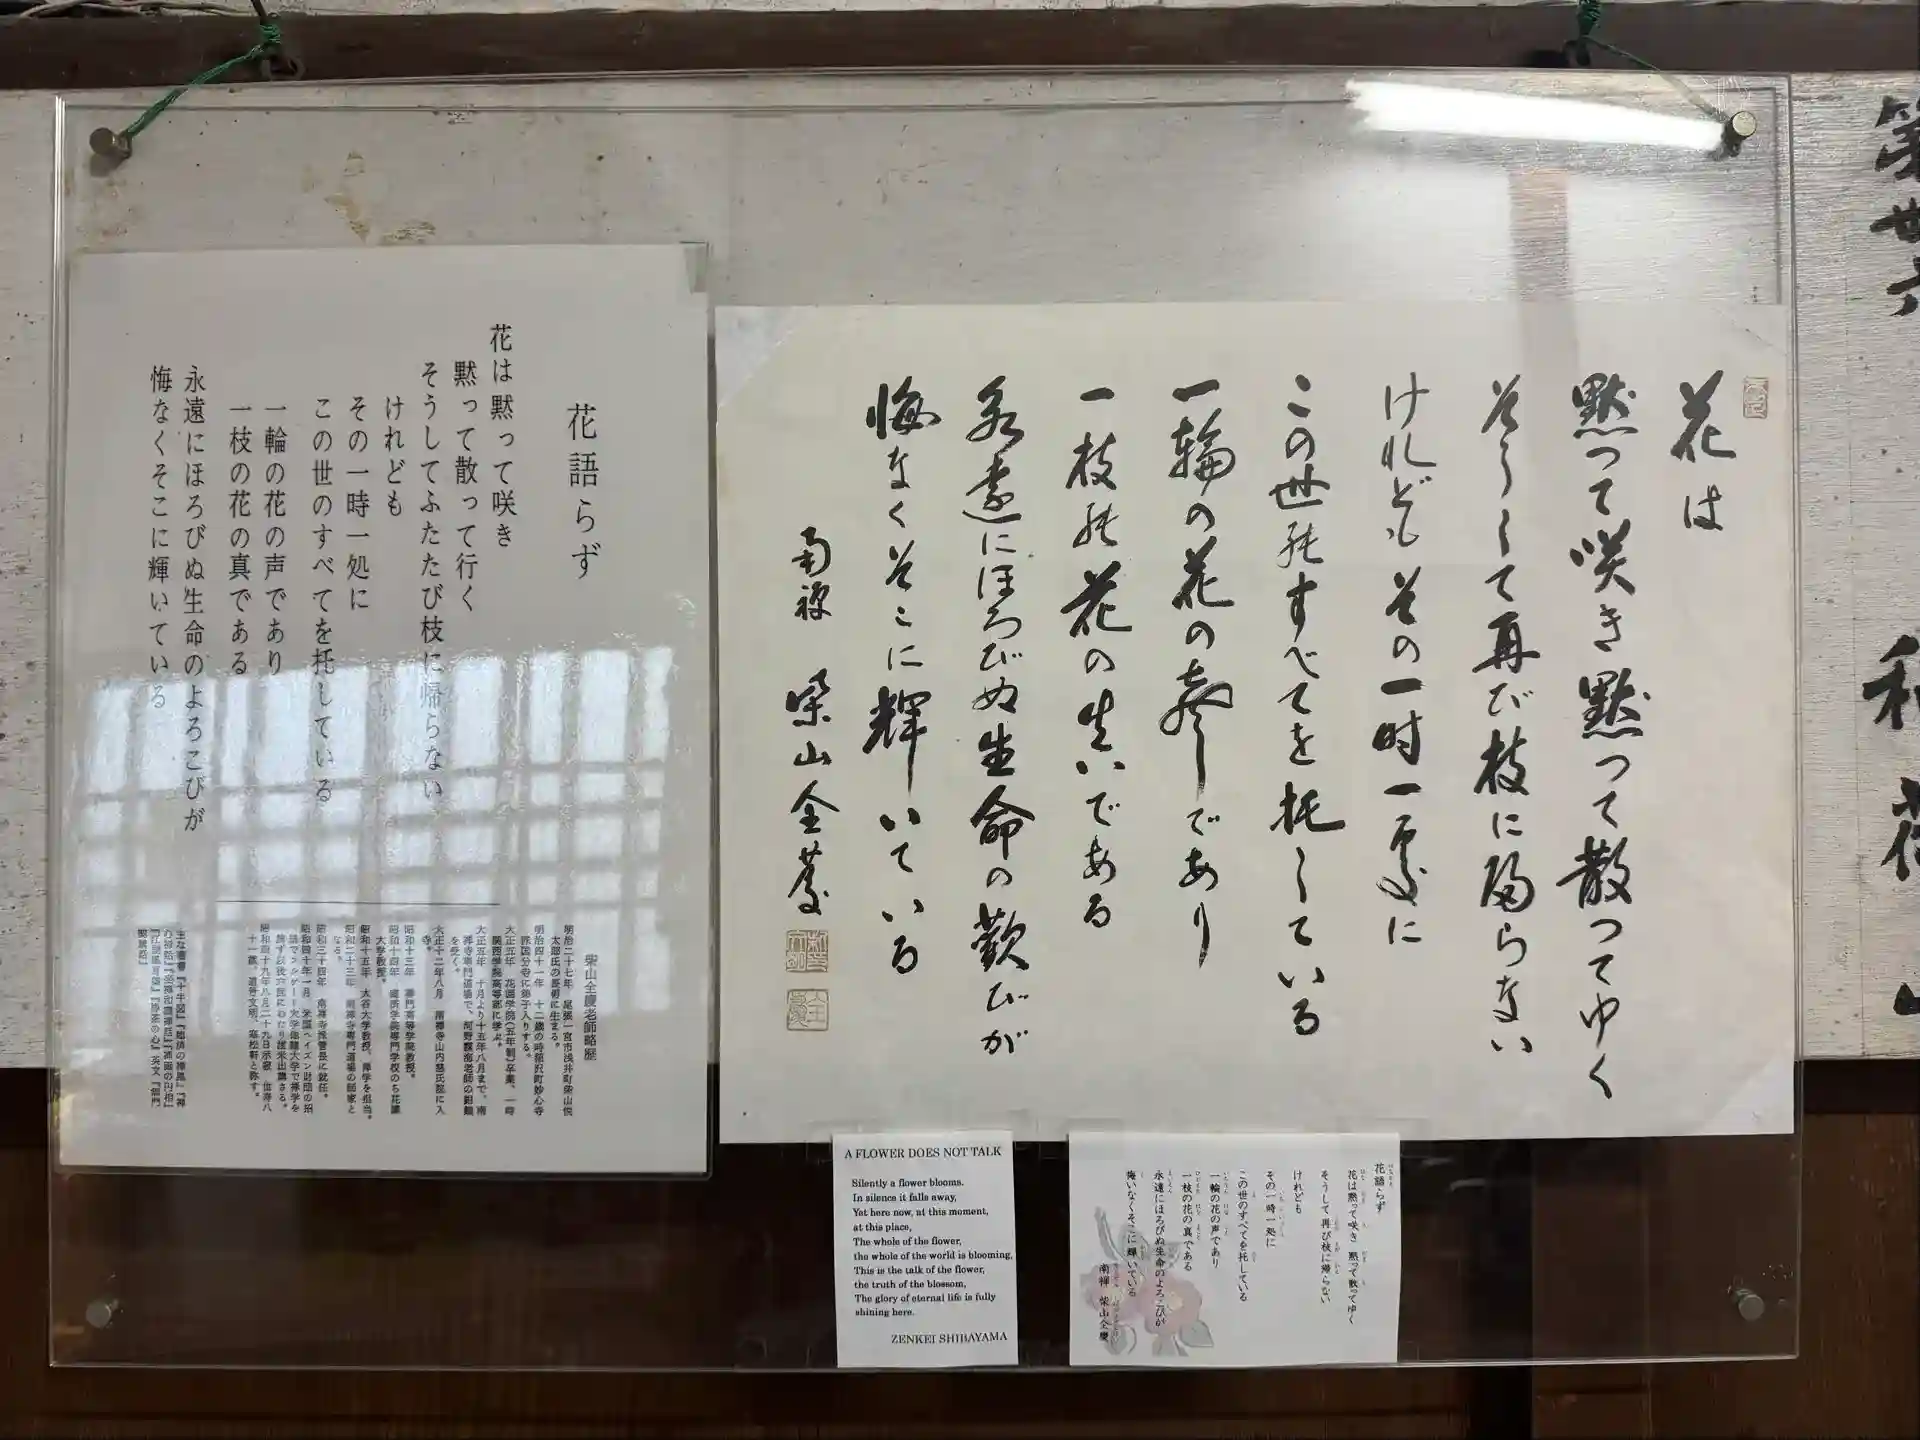 花は
黙って咲き黙って散ってゆく
そうして再び枝に帰らない
けれどもその一時一処に
この世のすべてを托している
一輪の花の声であり
一枝の花の真である
永遠にほろびぬ生命の歓びが
悔なくそこに輝いている
南禅 柴山全慶
花語らず
花は黙って咲き
黙って散って行く
そうしてふたたび枝に帰らない
けれども
その一時一処に
この世のすべてを托している
一輪の花の声であり
一枝の花の真である
永遠にほろびぬ生命のよろこびが
悔なくそこに輝いている
柴山全慶老師略歴
明治二十七年 尾張一宮市浅井町柴山悦
太郎氏の
に生まる。
明治四十一年 十二歳の時稲沢町妙心寺
派国分寺に弟子入りする。
大正五年 花園学院(五年制)卒業、一時
関西学院高等部に学ぶ。
大正五年 十月より十五年八月まで、南
禅寺専門道場で、河野霧海老師の鉗鎚
を受く。
大正十二年八月 南禅寺山内慈氏院に入
寺。
昭和十三年 専門高等学院教授。
昭和十四年 臨済学院専門学校のち花園
大学教授。
昭和十五年 大谷大学教授、禅学を担当。
昭和二十三年 南禅寺専門道場の師家と
なる。
昭和三十四年 南禅寺派管長に就任。
昭和四十年一月 米国ヘイズン財団の招
大学
大学で禅学を
昭和四十九年八月二十九日示寂 世寿八
十一歳。
寒松軒と称す。
A FLOWER DOES NOT TALK
Silently a flower blooms.
In silence it falls away,
Yet here now, at this moment,
at this place,
The whole of the flower,
the whole of the world is blooming,
This is the talk of the flower,
the truth of the blossom,
The glory of eternal life is fully
shining here.
ZENKEI SHIBAYAMA
花語らず
花は黙って咲き 黙って散ってゆく
そうして再び枝に帰らない
けれども
その一時一処に
この世のすべてを托している
一輪の花の声であり
一枝の花の真である
永遠にほろびぬ生命のよろこびが
悔いなくそこに輝いている
南禅 柴山全慶
第廿六